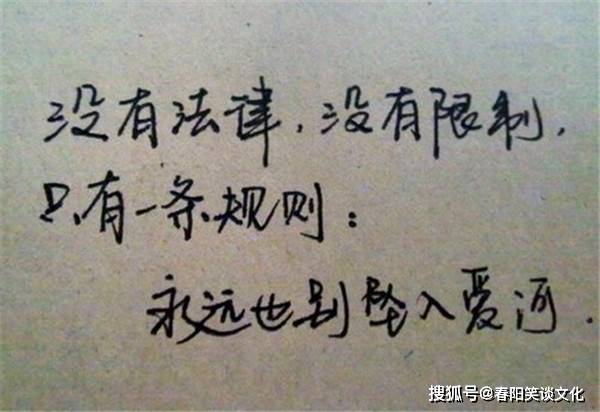 没有法律,没有限制,
只有一条规则:
永远也别坠入爱河.
搜狐号@春阳笑谈文化